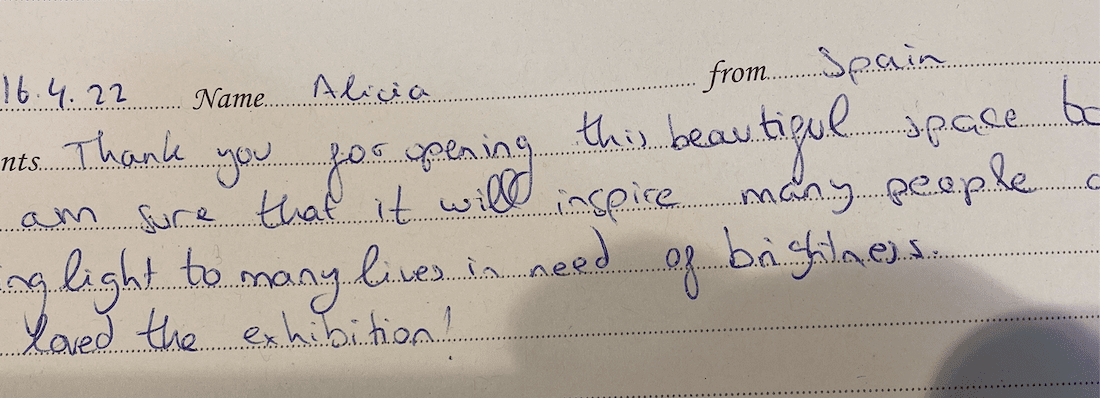 16.4.22 Name Alicia from Spain
nts Thank you for opening this beautiful space to
am sure that it will inspire many people
ng light to many lives in need of brightness.
loved the exhibition!